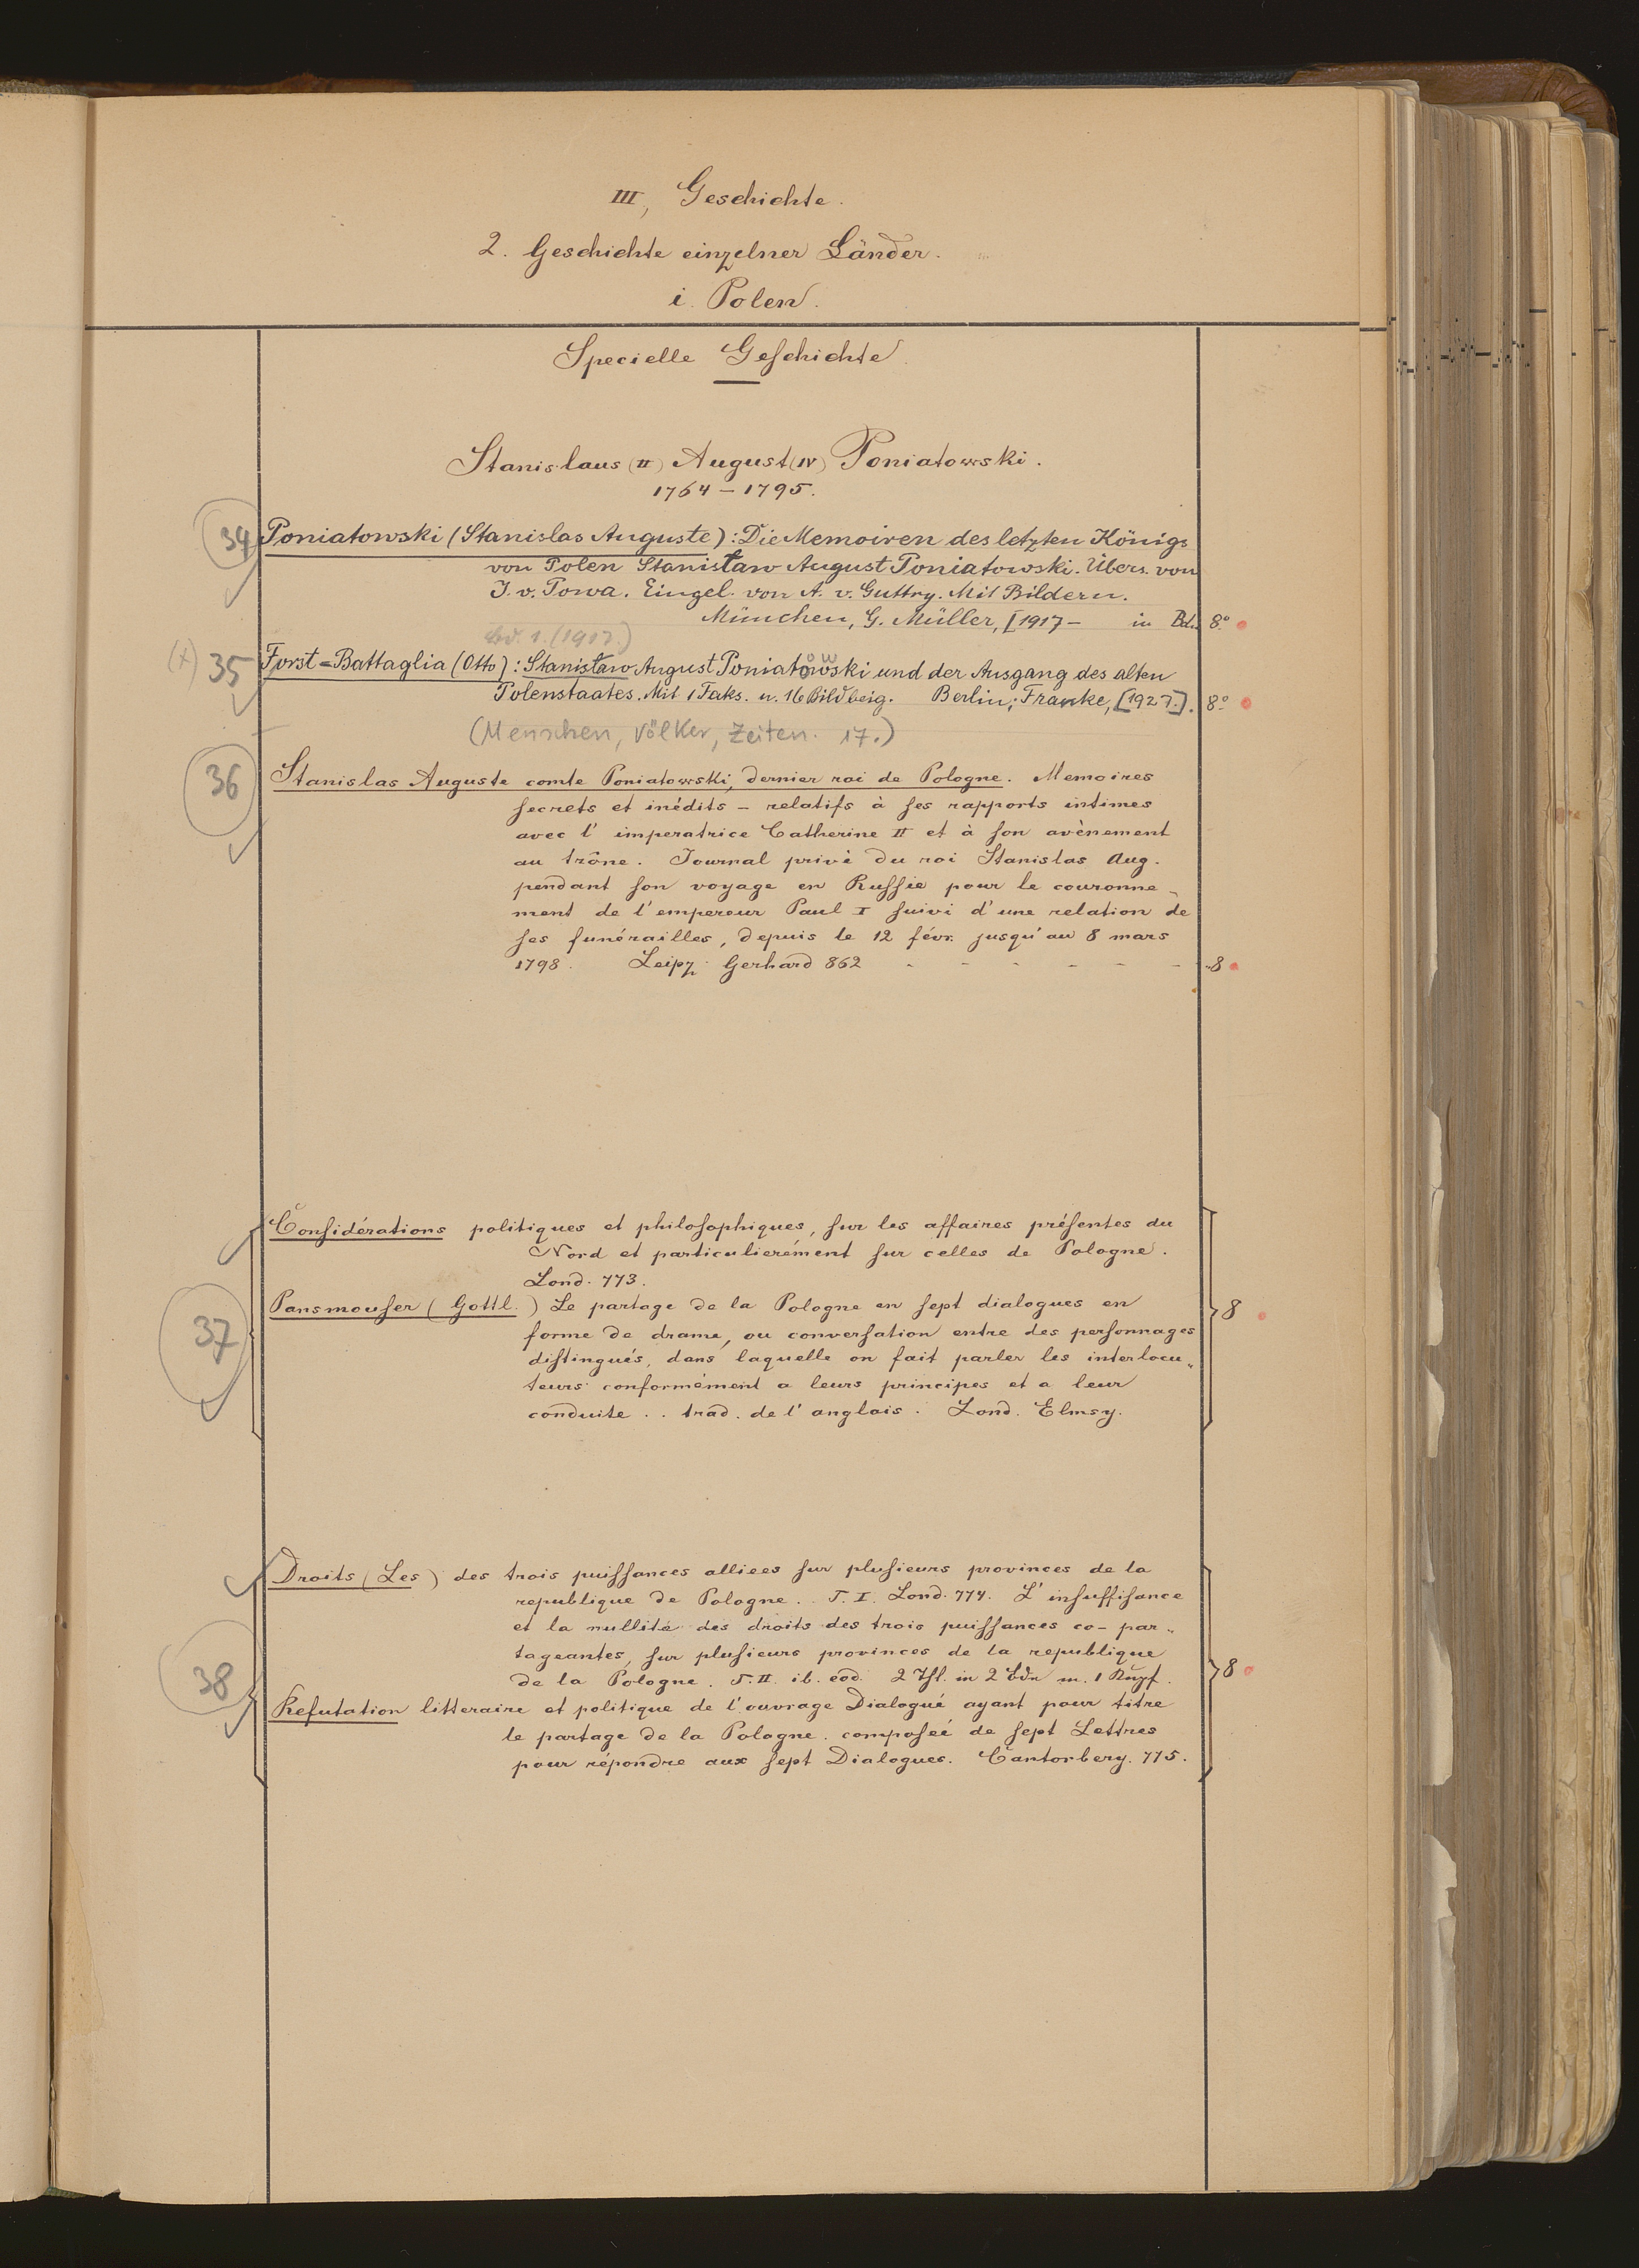 III, Geschichte.
2. Geschichte einzelner Länder.
i. Polen.
Specielle Geschichte.
Stanislaus (II) August (IV) Poniatowski.
1764 – 1795.
34 Poniatowski (Stanislas Auguste): Die Memoiren des letzten Königs
von Polen Stanisław August Poniatowski. Übers. von
J. v. Powa. Eingel. von A. v. Guttry. Mit Bildern.
München, G. Müller, [1917 – in Bdn 8º
Bd. 1. (1917.)
(x) 35 Forst-Battaglia (Otto): Stanisław August Poniatowski und der Ausgang des alten
Polenstaates. Mit 1 Faks. u. 16 Bildbeig. Berlin: Franke, [1927.]. 8º
(Menschen, Völker, Zeiten. 17.)
36 Stanislas Auguste comte Poniatowski, dernier roi de Pologne. Memoires
secrets et inédits – relatifs à ses rapports intimes
avec l'imperatrice Catherine II et à son avènement
au trône. Journal privé du roi Stanislas Aug.
pendant son voyage en Russie pour le couronne-
ment de l'empereur Paul I suivi d'une relation de
ses funérailles, depuis le 12 févr. jusqu'au 8 mars
1798. Leipz. Gerhard 862 - - - - - - 8
Considérations politiques et philosophiques, sur les affaires présentes du
Nord et particulierément sur celles de Pologne.
Lond. 773.
Pansmouser (Gottl.) Le partage de la Pologne en sept dialogues en 8
37 forme de drame, ou conversation entre des personnages
distingués, dans laquelle on fait parler les interlocu-
teurs conformément a leurs principes et a leur
conduite .. trad. de l'anglais. Lond. Elmsy.
Droits (Les) des trois puissances alliees sur plusieurs provinces de la
republique de Pologne.. T. I. Lond. 774. L'insuffisance
et la nullité des droits des trois puissances co-par-
tageantes, sur plusieurs provinces de la republique 8
38 de la Pologne. T. II. ib. eod. 2 Thl. in 2 Bdn m. 1 Kupf.
Refutation litteraire et politique de l'ouvrage Dialogué ayant pour titre
le partage de la Pologne. composeé de sept Lettres
pour répondre aux sept Dialogues. Cantorbery. 775.